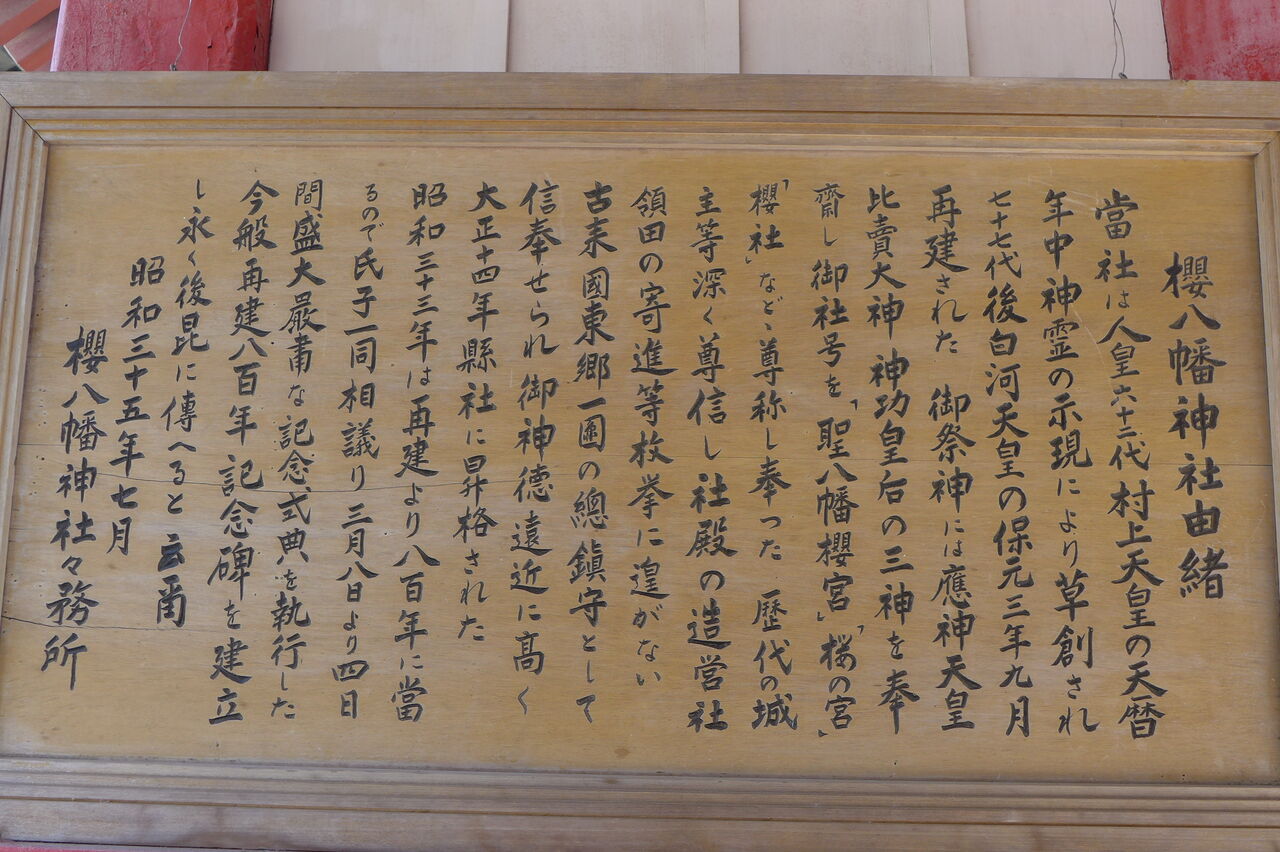 櫻八幡神社由緒
當社は人皇六十二代村上天皇の天暦
年中神霊の示現により草創され
七十七代後白河天皇の保元三年九月
再建された 御祭神には應神天皇
比賣大神 神功皇后の三神を奉
齋し御社号を「聖八幡櫻宮」「桜の宮」
「櫻社」などゝ尊称し奉った 歴代の城
主等深く尊信し社殿の造営社
領田の寄進等枚挙に遑がない
古来國東郷一圓の總鎮守として
信奉せられ御神德遠近に高く
大正十四年縣社に昇格された
昭和三十三年は再建より八百年に當
るので氏子一同相議り三月八日より四日
間盛大嚴肅な記念式典を執行した
今般再建八百年記念碑を建立
し永く後昆に傳へると云爾
昭和三十五年七月
櫻八幡神社々務所